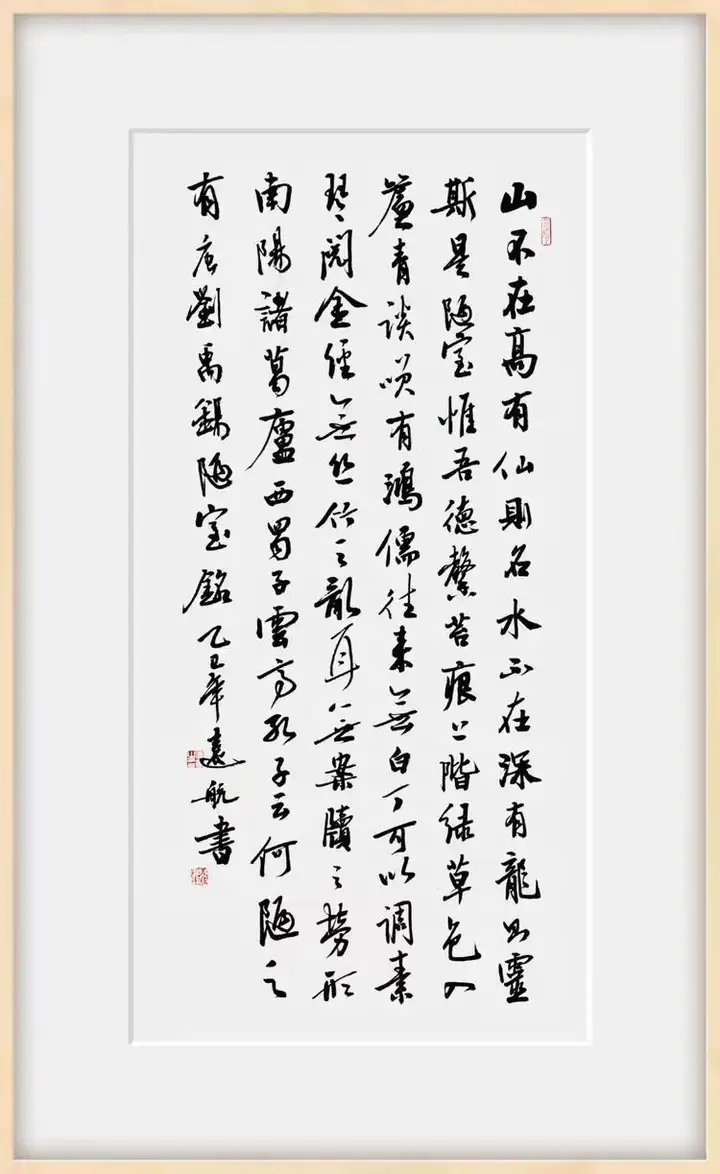 山不在高有仙則名水不在深有龍則靈
斯是陋室惟吾德馨苔痕上階緑草色入
簾青談咲有鴻儒往來無白丁可以調素
琴閱金經無絲竹之亂耳無案牘之勞形
南陽諸葛廬西蜀子雲亭孔子云何陋之
有唐劉禹錫陋室銘乙巳年遠航書